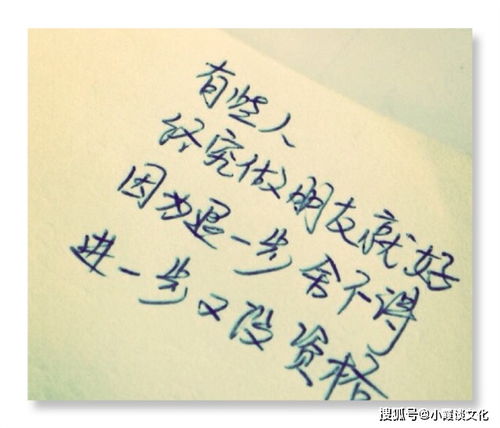 有些人
终究做朋友就好
因为退一步舍不得
进一步又没资格
搜狐号@小霞谈文化